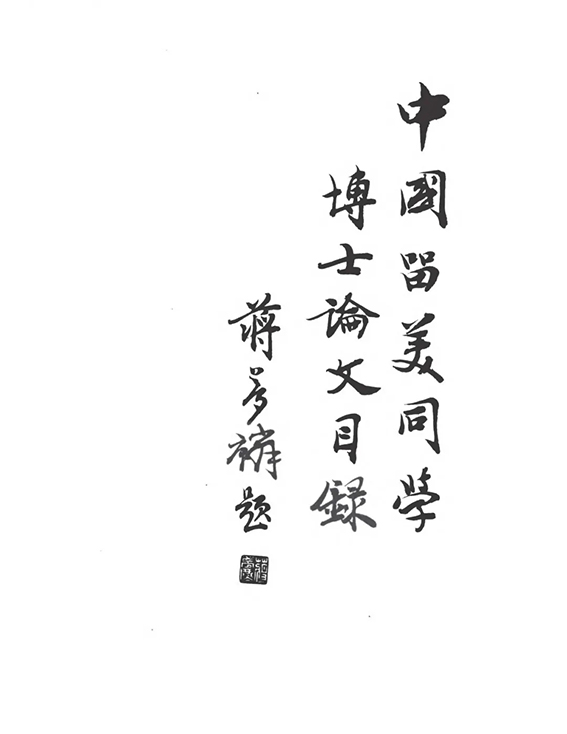 中國留美同學
博士論文目錄
蔣夢麟題